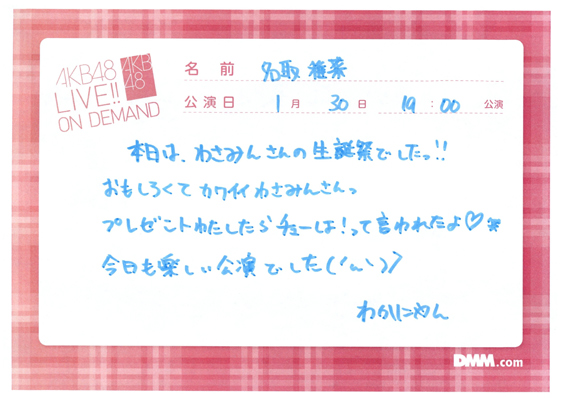 AKB48
LIVE!!
ON DEMAND
AKB
48
名 前 名取稚菜
公演日 1月 30日 19:00 公演
本日は、わさみんさんの生誕祭でしたっ!!
おもしろくてカワイイわさみんさんっ
プレゼントわたしたらチューは!って言われたよ♡笑
今日も楽しい公演でした('ん`)/
わかにゃん
DMM.com